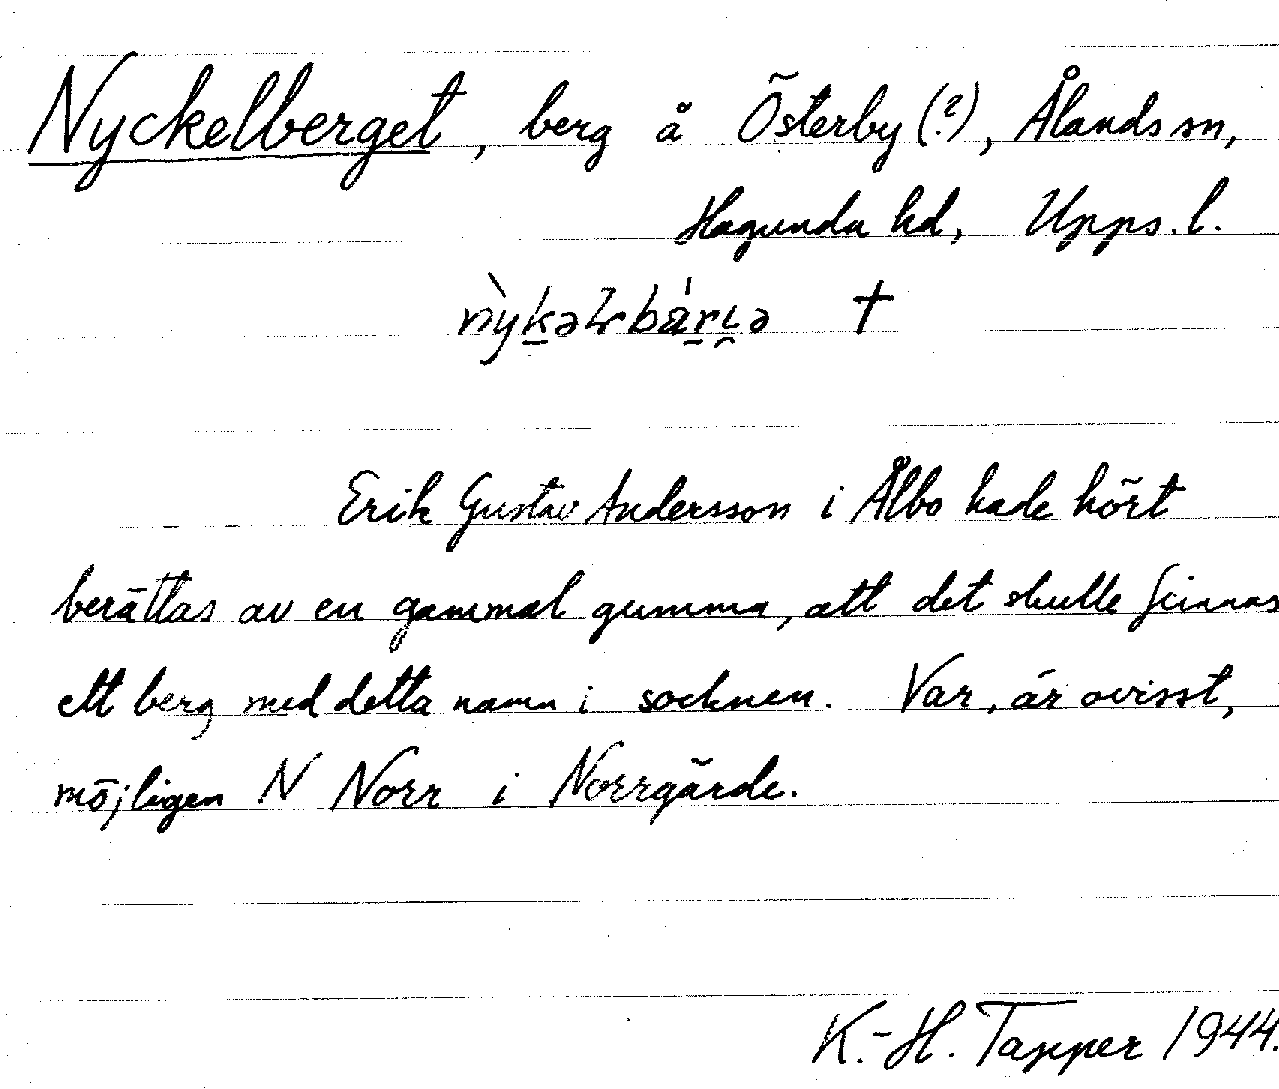 Nyckelberget, berg å Österby (?), Ålands sn,
Hagunda hd, Upps. l.
†
Erik Gustav Andersson i Ålbo hade hört
berättas av en gammal gumma, att det skulle finnas
ett berg med detta namn i socknen. Var, är ovisst,
möjligen N Norr i Norrgärde.
K.-H. Tapper 1944.